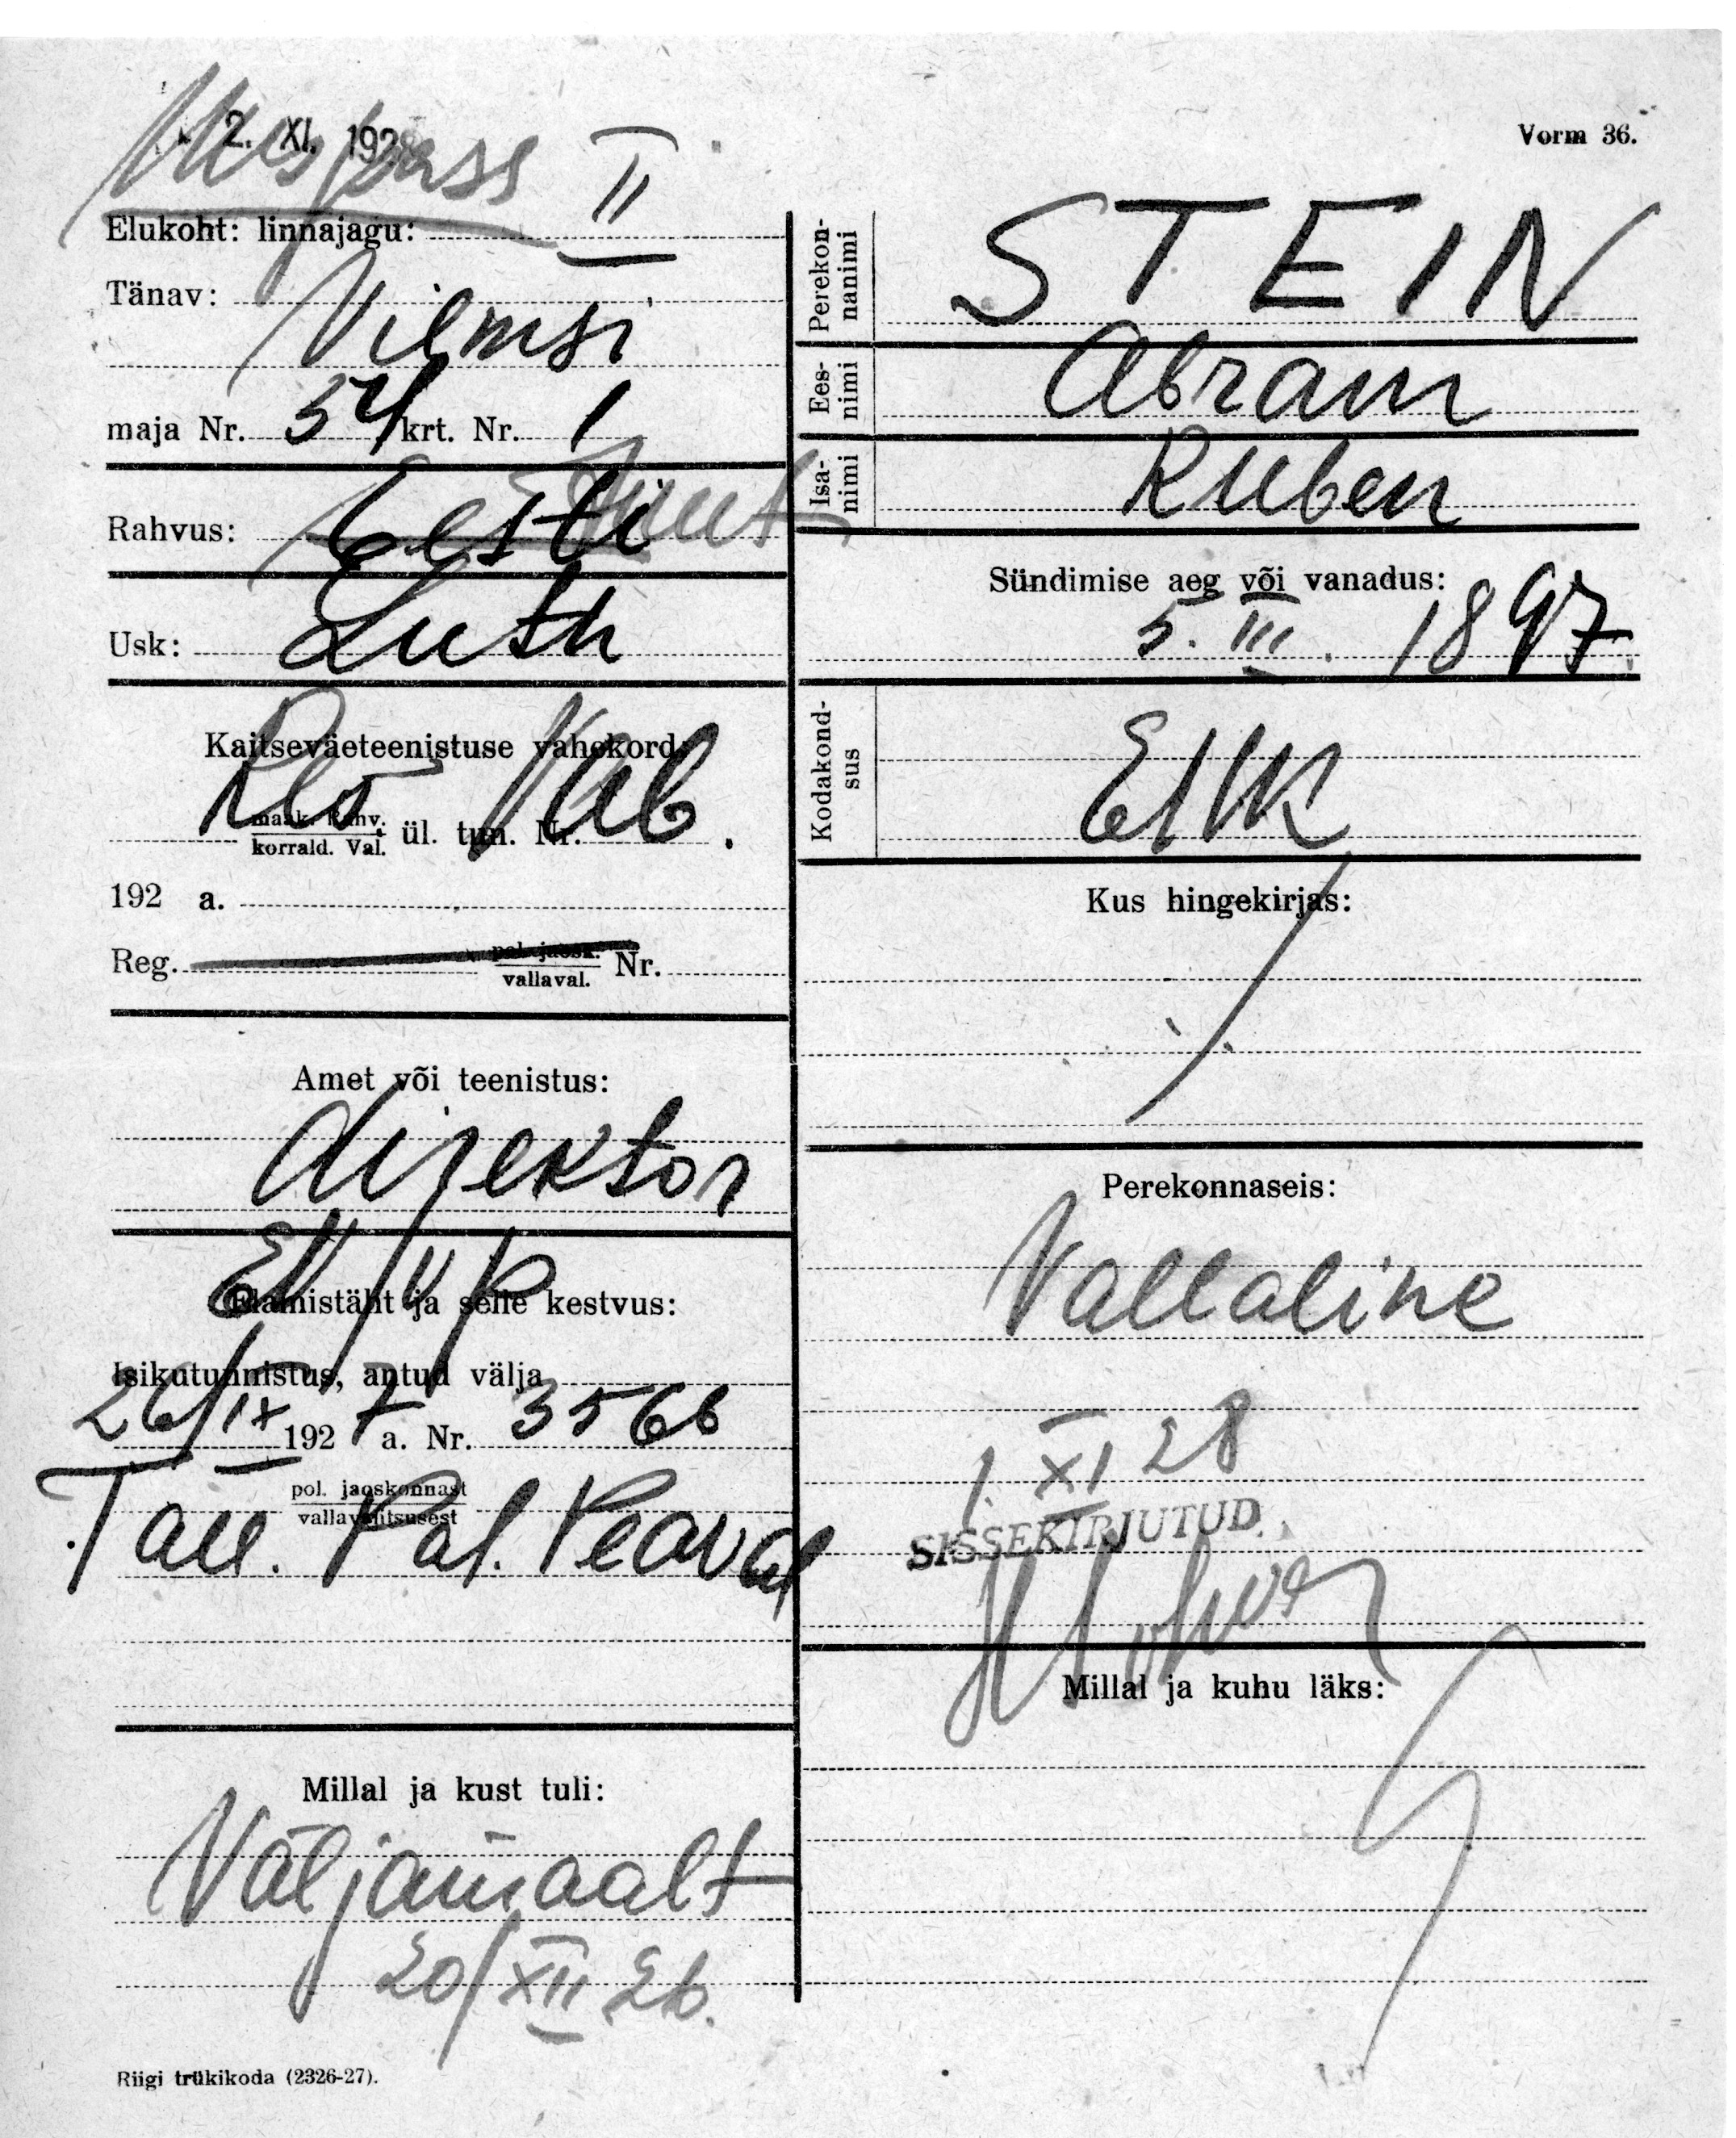 2. XI. 1928
Vorm 36.
II
Elukoht: linnajagu:
Tänav:
Vilmsi
maja Nr. 54 krt. Nr. 1
Rahvus: Eesti
Usk: Luth
Kaitseväeteenistuse vahekord:
Vab.
maak. Rahv.
korrald. Val. ül. tun. Nr.
192 a.
Reg. pol. jaosk.
vallaval. Nr.
Amet või teenistus:
direktor
Elamistäht ja selle kestvus:
Isikutunnistus, antud välja
26/IX 1927 a. Nr. 3566
pol. jaoskonnast
vallavalitsusest
Tall. Pol. Peaval
Millal ja kust tuli:
Väljamaalt
20/XII 26.
Riigi trükikoda (2326-27).
Perekon-
nanimi
STEIN
Ees-
nimi
Abram
Isa-
nimi
Ruben
Sündimise aeg või vanadus:
5. III. 1897.
Kodakond-
sus
Kus hingekirjas:
Perekonnaseis:
Vallaline
1. XI 28
SISSEKIRJUTUD
Millal ja kuhu läks: